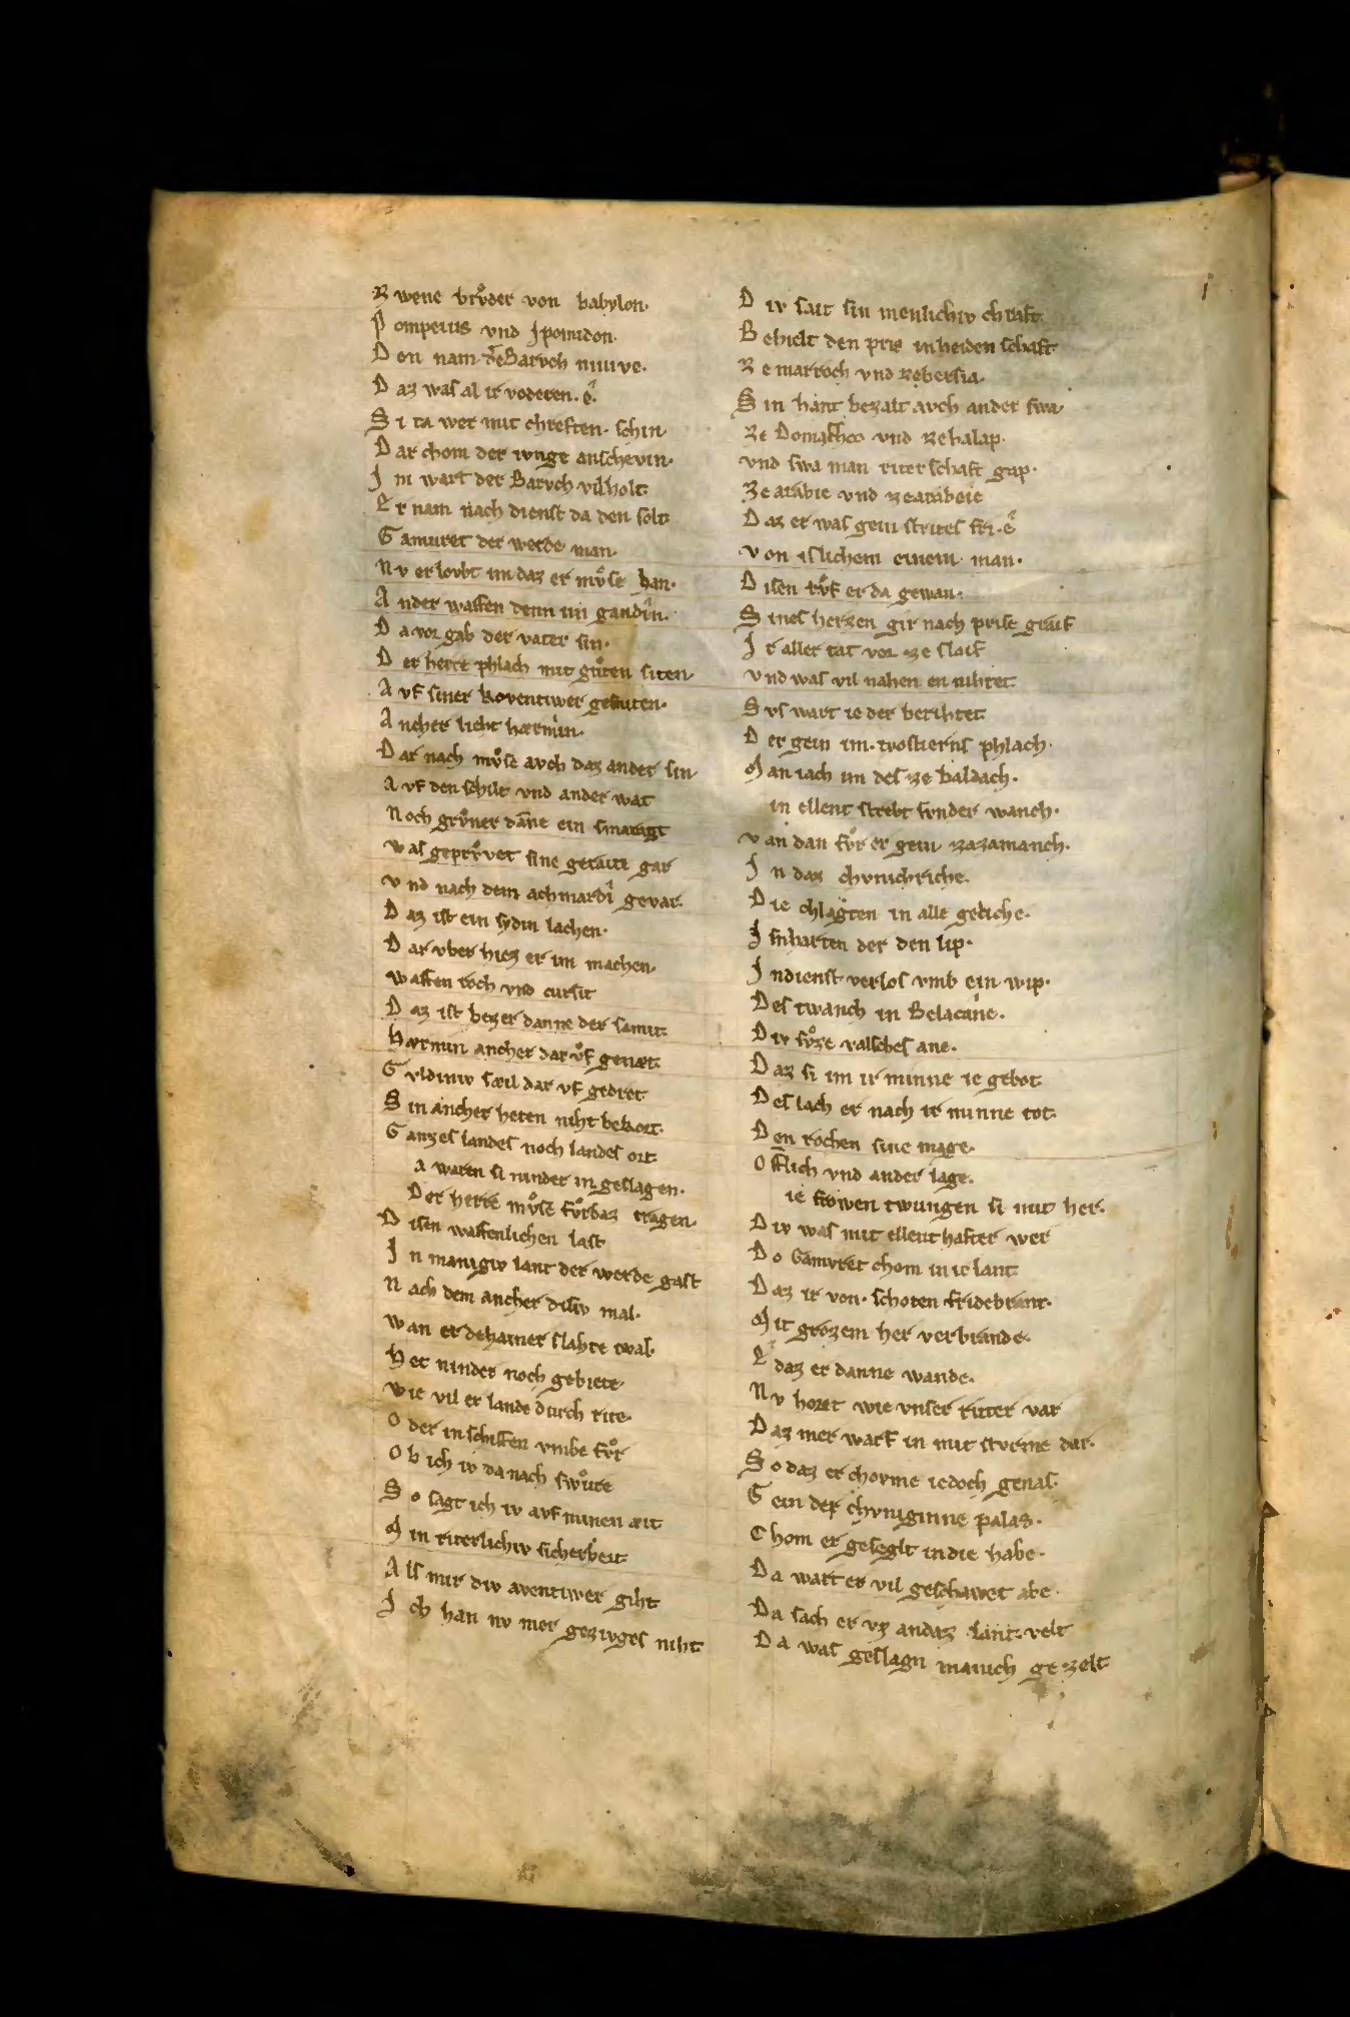 Z wene brůder von babylon·
P ompeius vnd Jpomidon·
D en nam deͬ Barvch ninive·
D az waſ al ir voderen· ê·
S i ta wer mit chreften· ſchin·
D ar chom der ivnge anſchevin·
J m wart der Barvch vil holt
E r nam nach dienſt da den ſolt
G amuret der werde man·
N v erlovbt im daz er mvͦſe han·
A nder waffen denn im gandin·
D a vor gab der vater ſin·
D er herre phlach mit gůten ſiten·
A vf ſiner kovertiwer geſniten·
A ncher lieht hærmin·
D ar nach mvͦſe avch daz ander ſin·
A vf den ſchilt vnd ander wat
N och grvͦner dāne ein ſmaragt
w aſ geprvͦvet ſine geraite gar
v nd nach dem achmardi gevar·
D az iſt ein ſydin lachen·
D ar vber hiez er im machen·
waffen roch vnd curſit
D az iſt bezer danne der ſamit·
Hærmin ancher dar vͦf genæt·
G vldiniv ſæil dar vf gedræt
S in ancher heten niht bekort·
G anzeſ landeſ noch landeſ ort·
a waren ſi ninder in geſlagen·
Der herre mvͦſe fvͦrbaz tragen·
D iſen waffenlichen laſt
J n manigiv lant der werde gaſt
N ach dem ancher diſiv mal·
wan er dehainer ſlahte twal·
Het ninder noch gebiete·
wie vil er lande durch rite·
O der in ſchiffen vmbe fvͦr
O b ich iv da nach ſwͦure
S o ſagt ich iv avf minen æit
M in riterlichiv ſicherheit·
A lſ mir div aventiwer giht
J ch han nv mer gezivgeſ niht
D iv ſait ſin menlichiv chraft·
B ehielt den pris in heiden ſchaft·
Z e marroch vnd ze berſia·
S in hant bezalt avch ander ſwa·
Ze Domaſcho vnd ze halap·
vnd ſwa man riter ſchaft gap·
Ze arabie vnd ze arabeie
D az er waſ gein ſtriteſ fri· ê
v on iſlichem einem man·
D iſen rvͦf er da gewan·
S ineſ herzen gir nach priſe graif
J r aller tat vor ze ſlaif
v nd waſ vil nahen en nihtet·
S vſ wart ie der berihtet·
D er gein im· tioſtierns phlach·
M an iach im deſ ze baldach·
in ellent ſtrebt ſvnder wanch·
v an dan fvͦr er gein zazamanch·
J n daz chvnichriche·
D ie chlagten in alle geliche·
J ſnharten der den lip·
J n dienſt verloſ vmb ein wip·
Deſ twanch in Belacane·
D iv ſvͦze valſcheſ ane·
D az ſi im ir minne ie gebot·
D eſ lach er nach ir minne tot·
D en rochen ſine mage·
O fflich vnd ander lage·
ie frowen twungen ſi mit her·
D iv waſ mit ellenthafter wer
D o Gamvret chom in ir lant·
D az ir von· ſchoten fridebrant·
M it grozem her verbrande·
E daz er danne wande·
N v horet wie vnſer ritter var
D az mer warf in mit ſtvrme dar·
S o daz er chovme iedoch genaſ·
G ein der chvniginne palas·
C hom er geſeglt in die habe·
D a wart er vil geſchawet abe·
D a ſach er vz an daz lant· velt
D a waſ geſlagn manich ge zelt